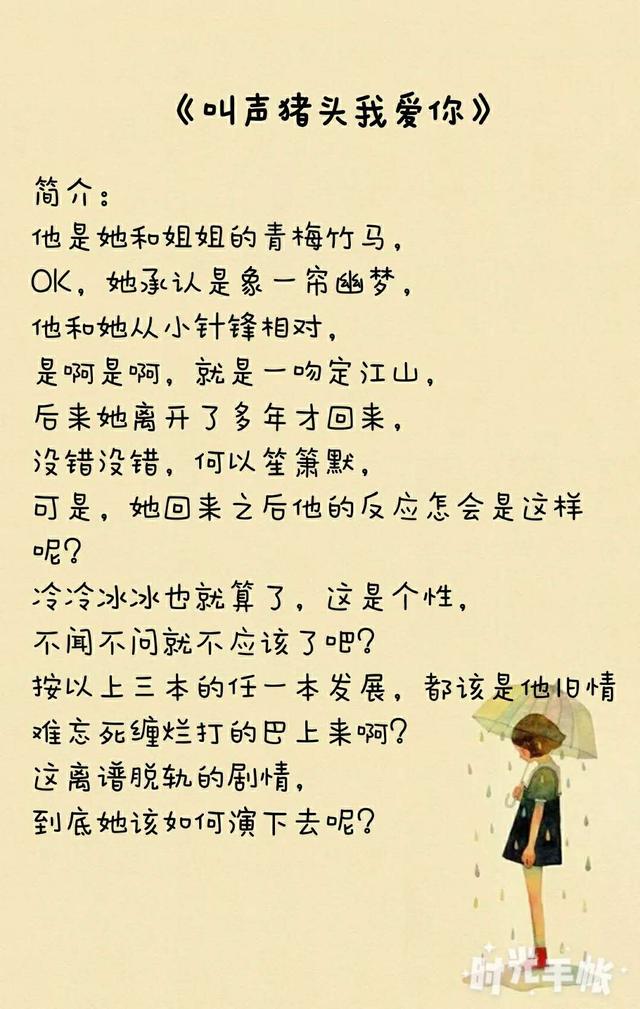 《叫声猪头我爱你》
简介：
他是她和姐姐的青梅竹马，
OK，她承认是象一帘幽梦，
他和她从小针锋相对，
是啊是啊，就是一吻定江山，
后来她离开了多年才回来，
没错没错，何以笙箫默，
可是，她回来之后他的反应怎会是这样
呢？
冷冷冰冰也就算了，这是个性，
不闻不问就不应该了吧？
按以上三本的任一本发展，都该是他旧情
难忘死缠烂打的巴上来啊？
这离谱脱轨的剧情，
到底她该如何演下去呢？
时光手帐